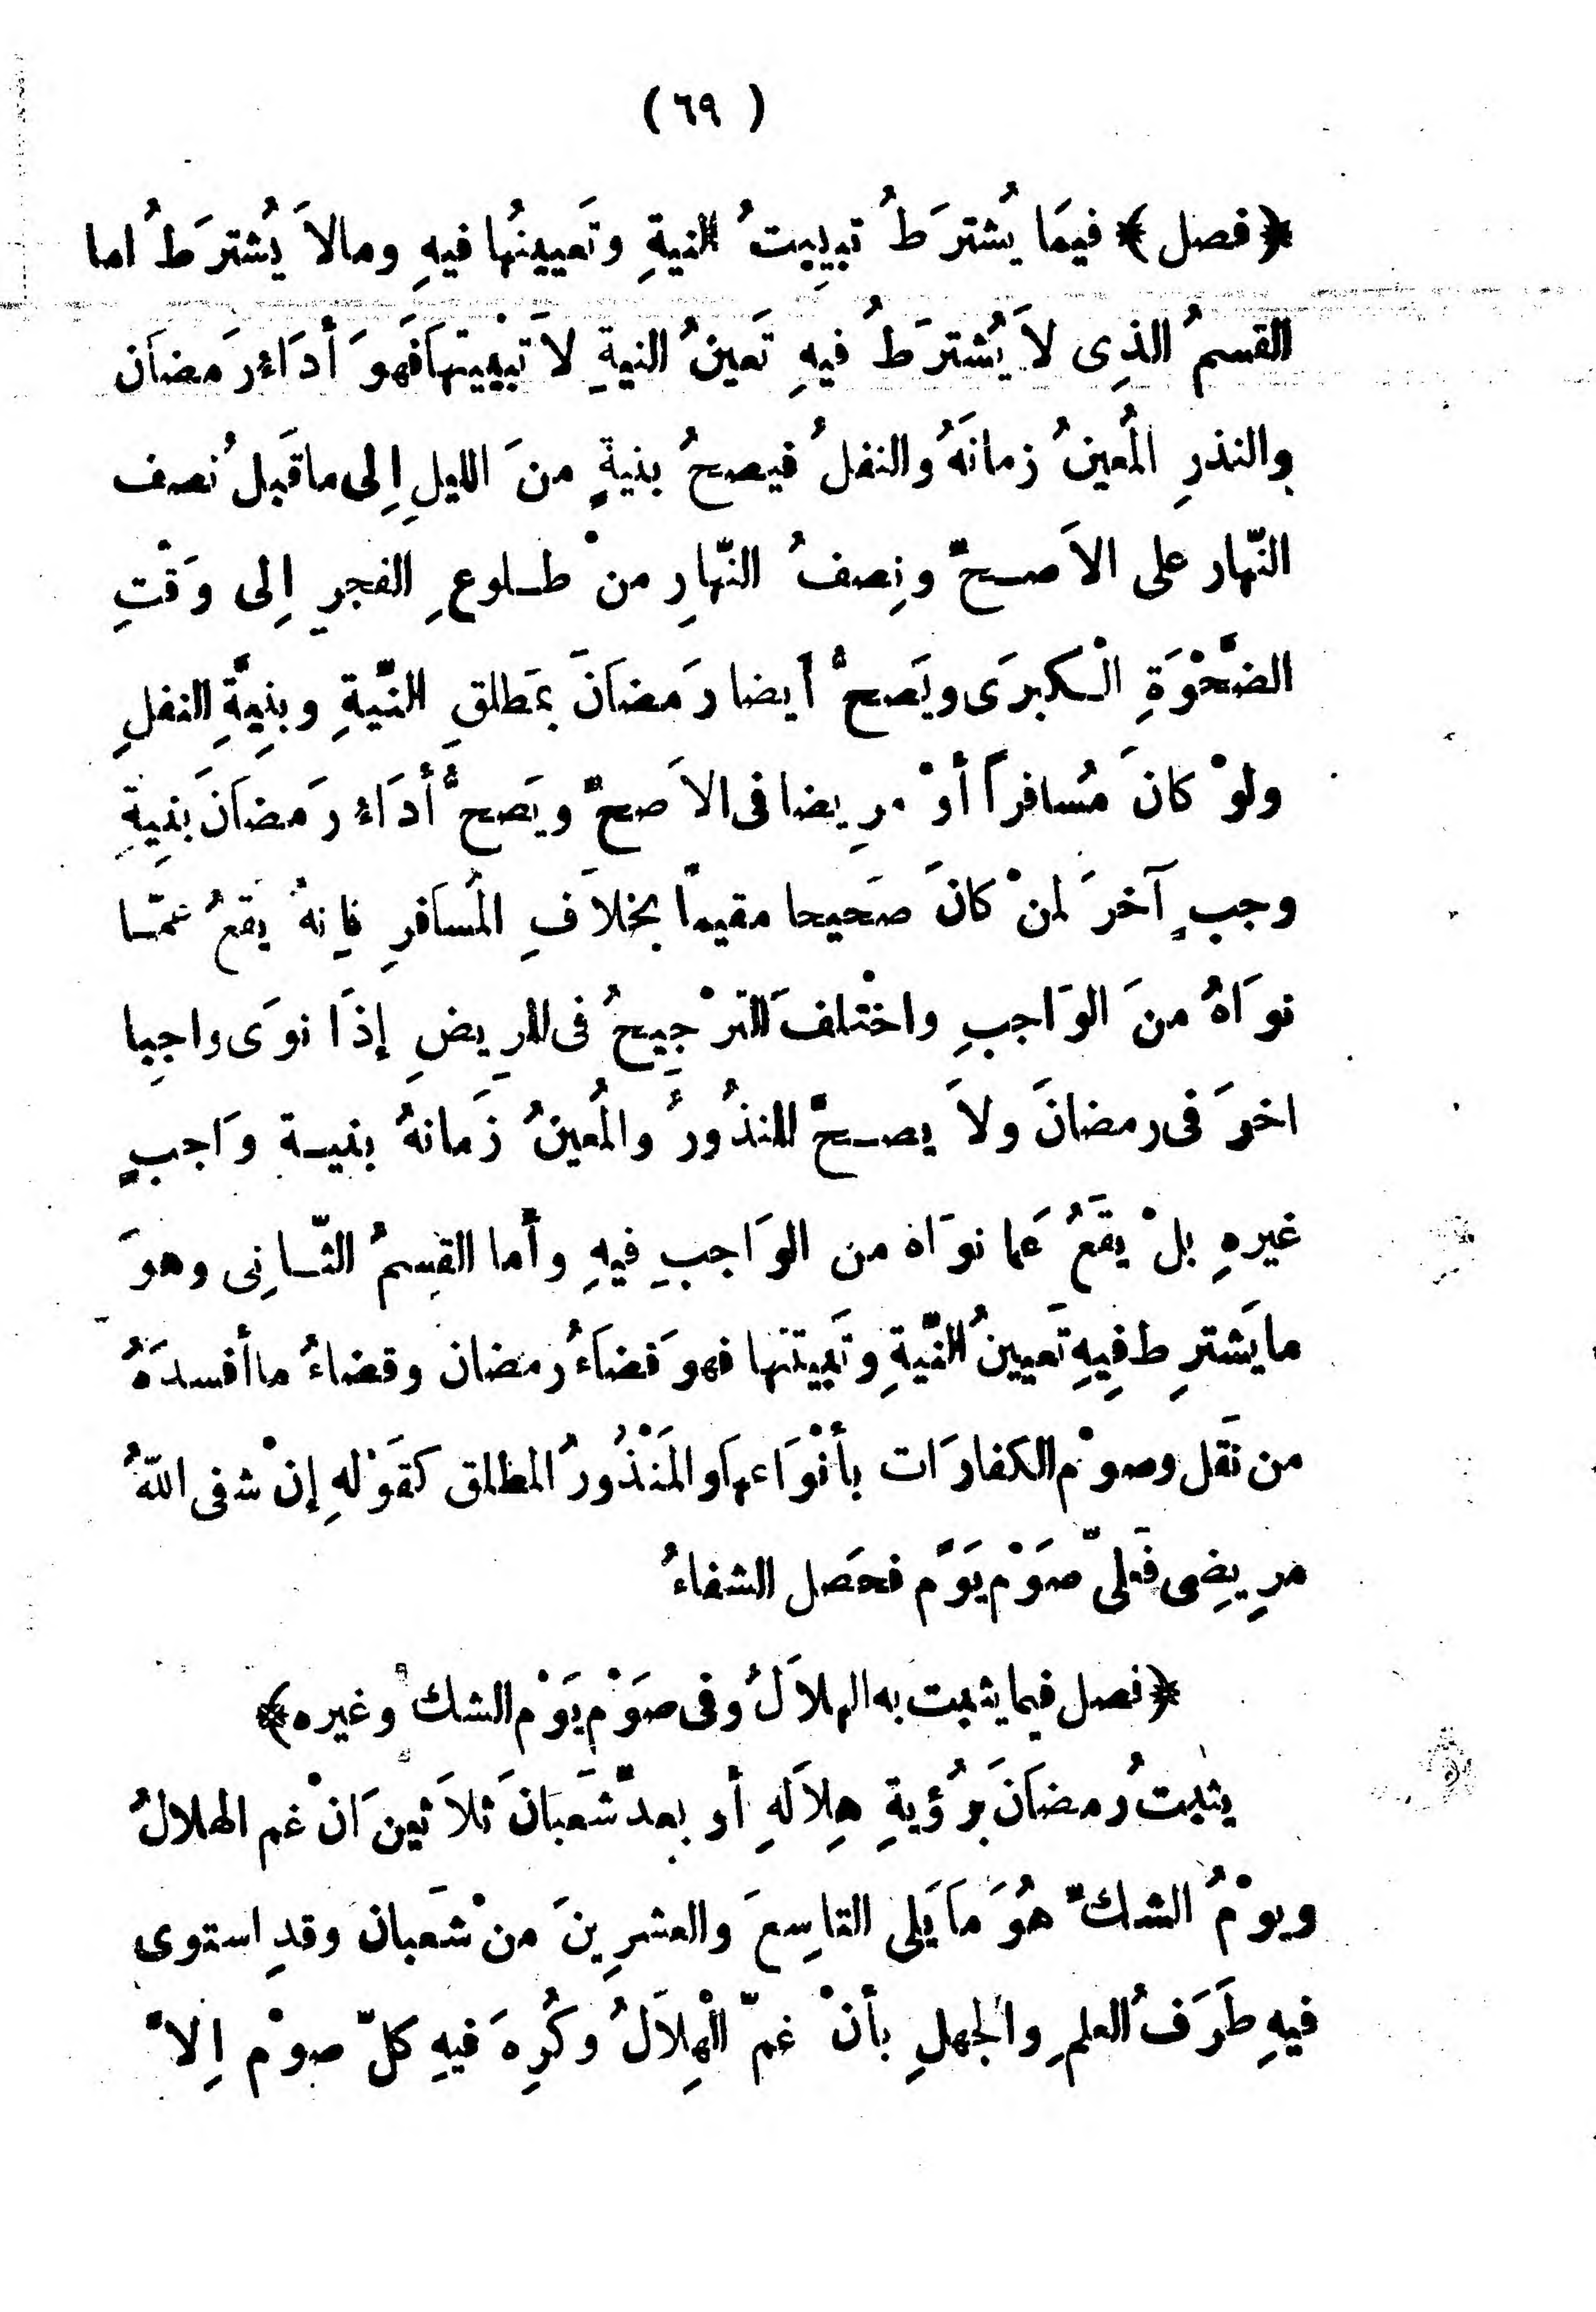 ( ٦٩ )
﴿ فصل ﴾ فيمَا يُشترَطُ تبييتُ النيةِ وتَعيينُها فيهِ ومالاَ يُشترَطُ اما
القسمُ الذِى لاَ يُشترَطُ فيهِ تَعينُ النيةِ لاَ تبْييتهاَ فَهوَ أدَاءُ رَمضاَن
والنذرِ المُعينُ زمانَهُ والنفلُ فيصحُ بنيةٍ منَ الليلِ اِلى ماقَبلُ نصف
النّهار على الاَصـحّ ونِصفُ النّهارِ منْ طـلوعِ الفجرِ اِلى وَقْتِ
الضَّحْوَةِ الْـكبرَى ويَصحُّ أيضا رَمضاَنَ بمَطلقِ النّيةِ وبنِيَّةِ النفلِ
ولوْ كانَ مُسافراً أوْ مرِيضا فى الاَصحّ ويَصحُّ أدَاءُ رَمضاَنَ بَنِيةِ
وجبٍ آخرَ لمنْ كانَ صَحيحا مقيماً بخلاَفِ المُسَافرِ فاِنهُ يقعُ عمّـا
نوَاهُ منَ الوَاجبِ واخْتلفَ التَرْجِيحُ فى المرِيضِ إذَا نوَى واجِبا
اخرَ فى رمضانَ ولاَ يصـحّ المنذُورُ والمُعينُ زَمانهُ بنيـة وَاجبٍ
غيرهِ بلْ يقَعُ عَما نوَاه من الوَاجبِ فيهِ وأما القِسمُ الثّـانِى وهوَ
ما يَشترِط فِيهِ تَعيينُ النّيةِ وتَبيتنَها فهوَ قضَاءُ رمضان وقضاءُ ما أفسدَهُ
من نَفل وصوْم الكفارَات بأنْوَاعهاَ والمَنْذُورُ المطلق كقَوْلهِ إنْ شفى اللّهُ
مرِيضِى فَعلىّ صوَْم يَوَْم فحصَل الشفاءُ
﴿ فصل فيما يثبت به الهلاَلُ وفى صوَْم يَوْم الشك وغيره ﴾
يثبتُ رمضاَنَ برُؤيةِ هِلاَلهِ أو بعدّ شَعبَانَ ثلاَثينَ انْ غم الهلالُ
ويوْمُ الشكّ هُوَ مَا يَلى التاسِعَ والعشرِينَ منْ شَعبان وقدِ استوى
فيهِ طَرَفُ العلمِ والجهلِ بأنْ غمّ الْهِلاَلُ وكُرِهَ فيهِ كلّ صوْم اِلاْ